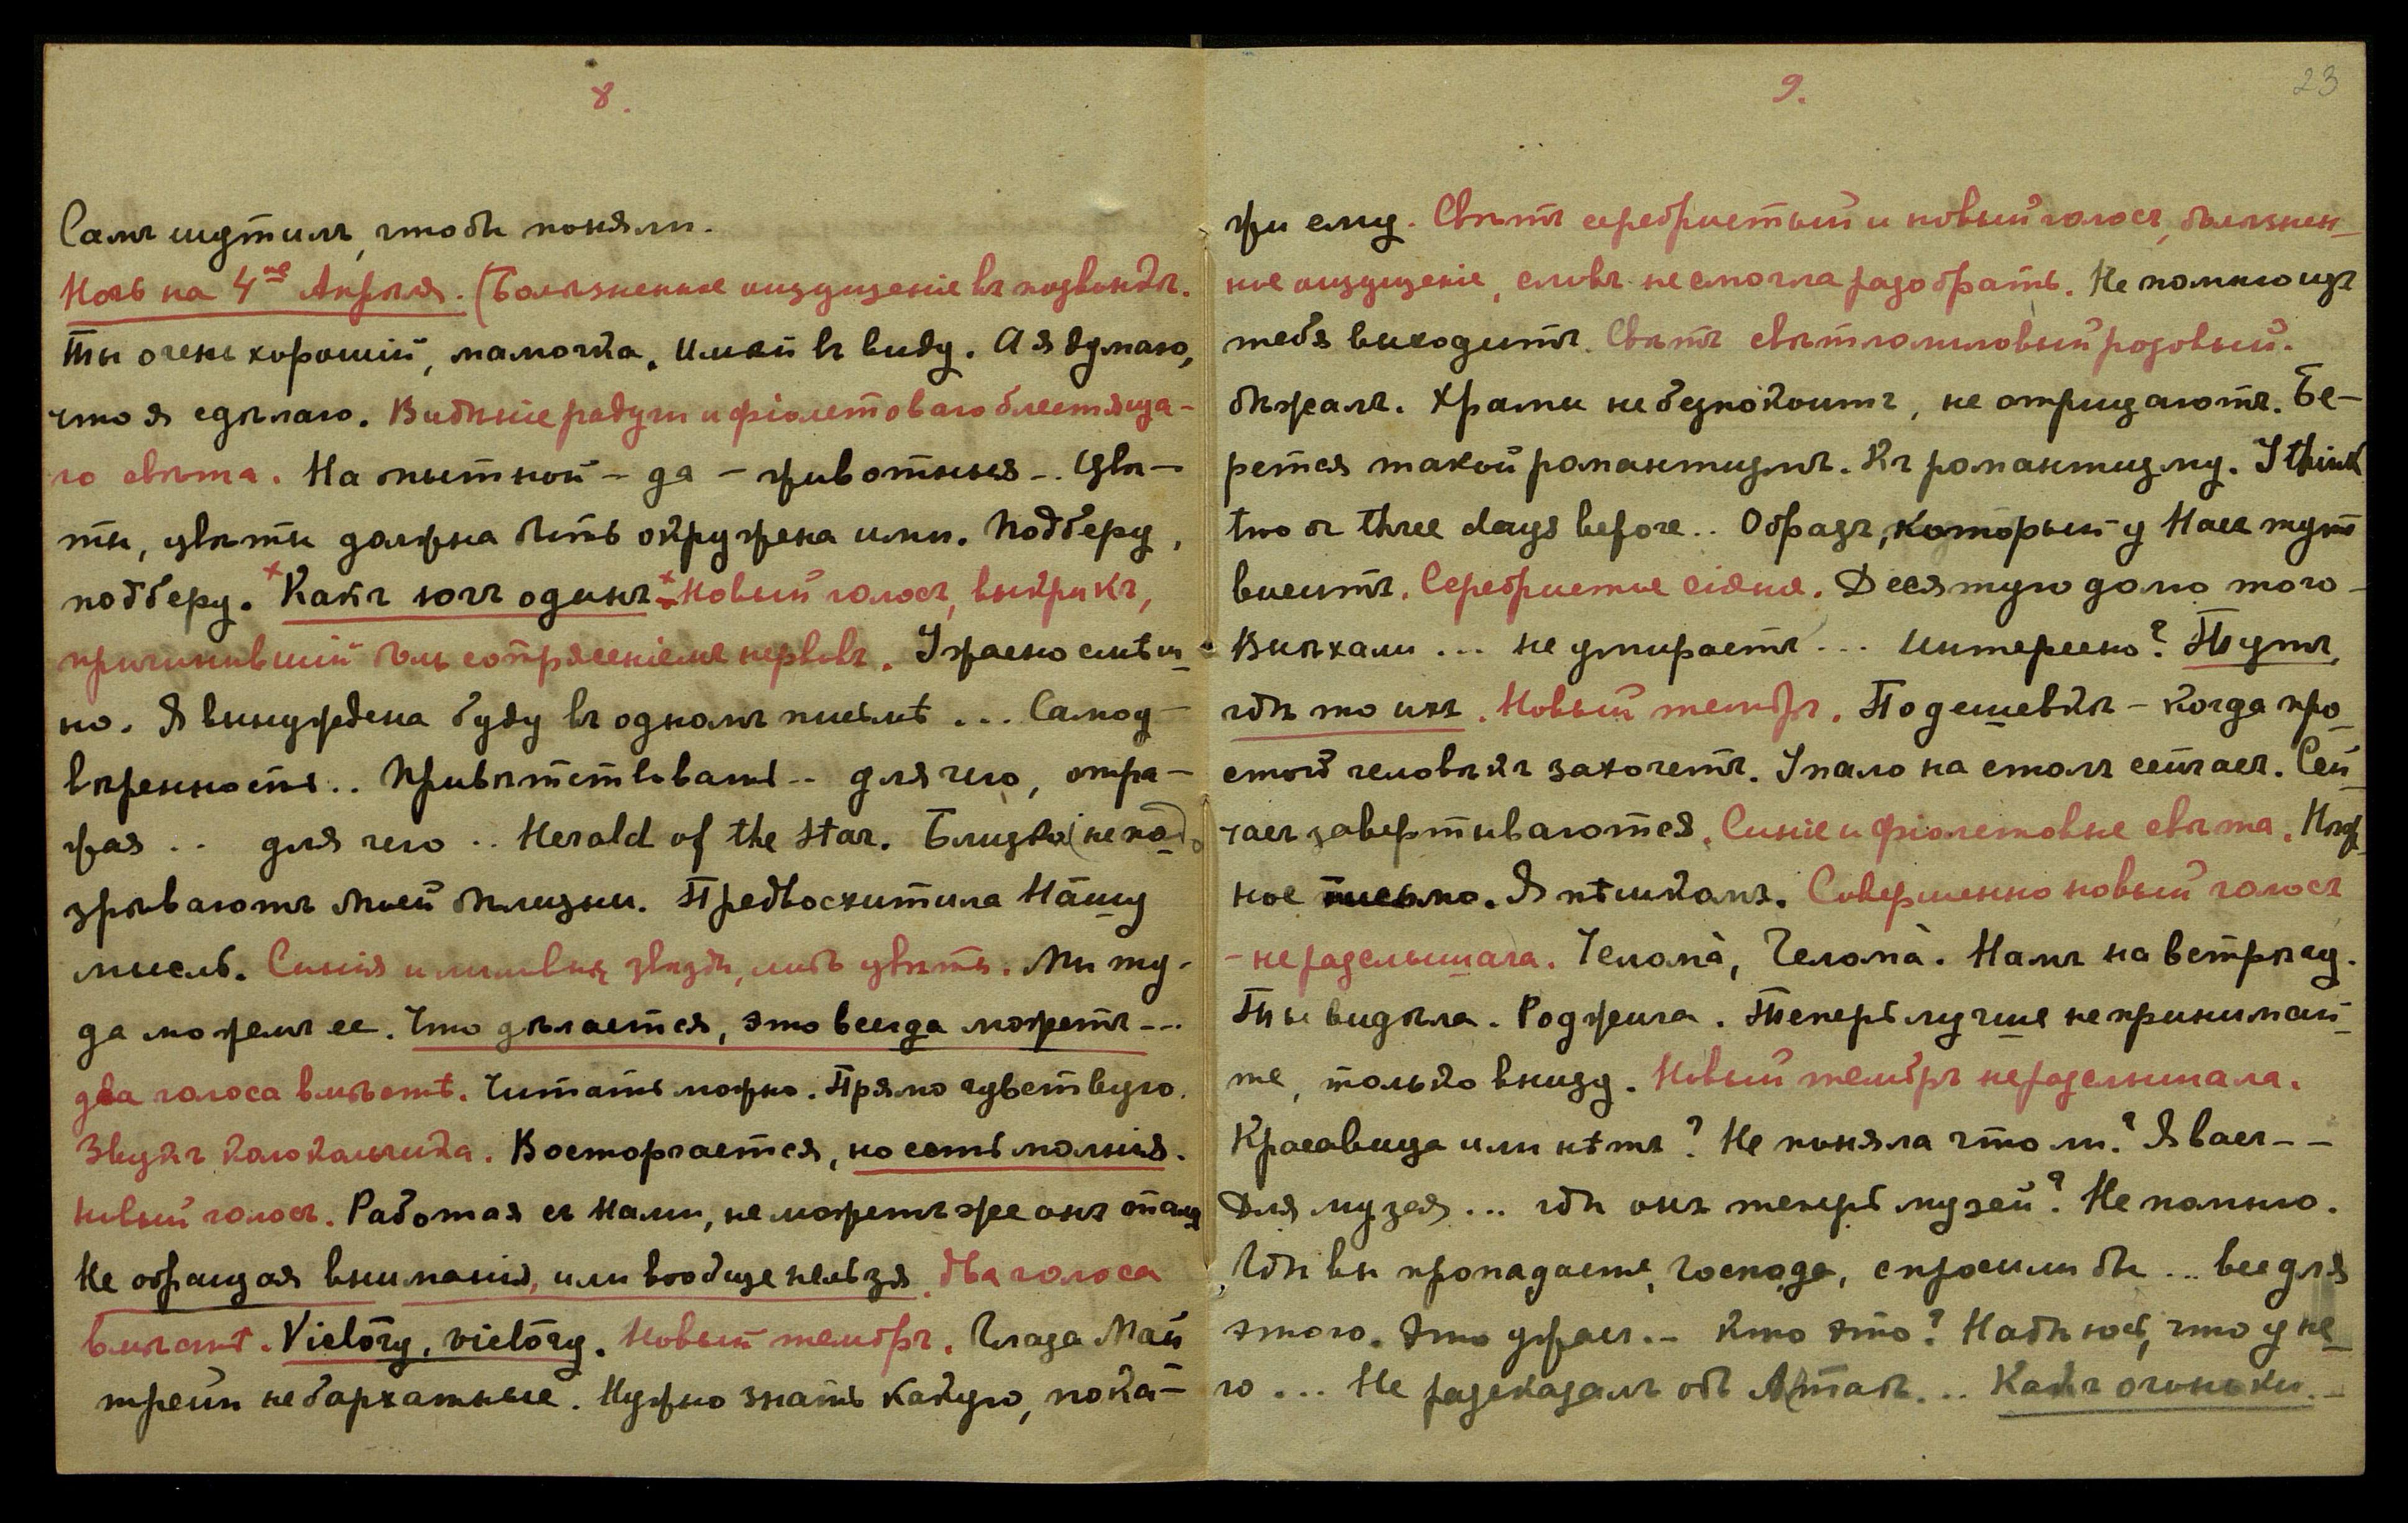 8.
Самъ шутилъ, чтобы поняли.
Ночь на 4ое Апрѣля. (Болѣзненное ощущеніе въ
Ты очень хорошій, мамочка. Имѣй въ виду. А я думаю,
что я сдѣлаю. Видѣніе радуги и фіолетоваго блестяща-
го свѣта. На опытной - да - животныя -. Цвѣ-
ты, цвѣты должна быть окружена ими. Подберу,
подберу. Какъ югъ одинъ Новый голосъ, выкрикъ,
причинившій боль сотрясеніемъ нервовъ. Ужасно смѣш-
но. Я вынуждена буду въ одномъ письмѣ ... Самоу-
вѣренность.. Привѣтствовать.. для чего, отра-
жая .. для чего .. Herald of the Star. Близка (не по-
зрѣваютъ моей близи. Предвосхитила Нашу
мысль. Синія и лиловыя звѣзды, либо цвѣты. Мы ту-
да можемъ ее. Что дѣлается, это всегда можетъ ---
два голоса вмѣстѣ. Читать можно. Прямо чувствую.
Звукъ колокольчика. Восторгается, но есть молнія.
Новый голосъ. Работая съ Нами, не можетъ же онъ
Не обращая вниманія, или вообще нельзя. два голоса
вмѣстѣ. Victory, victory. Новый тембръ. Глаза Май
трейи не бархатные. Нужно знать какую, пока-
23
9.
жи ему. Свѣтъ серебристый и новый голосъ, болѣзнен-
ное ощущеніе, словъ не смогла разобрать. Не помню изъ
тебя выходитъ. Свѣтъ свѣтлолиловый розовый.
бѣжалъ. Храмы не безпокоитъ, не отрицаютъ. Бе-
рется такой романтизмъ. Къ романтизму. I think
two or three days before.. Образъ, который у Насъ тутъ
виситъ. Серебристые сіянія. Десятую долю того -
Выѣхали ... не умираетъ ... Интересно? Тутъ,
гдѣ то ихъ. Новый тембръ. Подешевкѣ - когда про
стой человѣкъ захочетъ. Упало на столъ сейчасъ. Сей
часъ завертываются. Синіе и фіолетовые свѣта. Нуж
ное письмо. Я пѣшкомъ. Совершенно новый голосъ
- не разслышала. Челомà, Челомà. Намъ на встрѣчу.
Ты видѣла. Роджила. Теперь лучше не принимай-
те, только внизу. Новый тембръ не разслышала.
Красавица или нѣтъ? Не поняла что ли? Я васъ - -
Для музея ... гдѣ онъ теперь музей? Не помню.
Гдѣ вы пропадаете, Господа, спросили бы ... все для
этого. Это ужасъ.- Кто это? Надѣюсь, что у не
го ... Не разсказалъ объ ... Какъ огоньки.-